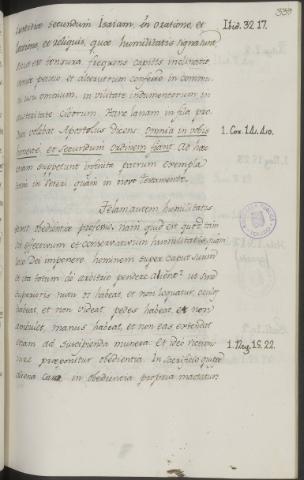 339
Iustitiae secundum Isaiam, in oratione, et
lectione, et reliquis, quae humilitatis signa sunt
sicut est tonsura frequens capitis inclinatio
et alterutrum confessio in commu
ni in omnium, in vilitate indumentorum in
austeritate ciborum. Hanc lanam in illa pro
volebat Apostolus dicens: Omnia in vobis
honeste, et secundum ordinem fiant. Ad hoc
suppetunt infinita patrum exempla
tam in veteri quam in novo testamento.
Isai. 32. 17.
1. Cor. 14. 40.
Telam autem humilitatis
obedientiae nam quid est quod tam
sit effectivum et conservativum humilitatis, quam
Dei imponere hominem super caput suum
et ita totum de arbitrio pendere ut sine
superioris nutu os habeat, et non loquatur, oculos
habeat, et non videat, pedes habeat, et non
ambulet, manus habeat, et non eas extendat
etiam ad suscipienda munera. Et ideo victi
mae praeponitur obedientia. In sacrificio quippe
aliena caro, in obedientia propria mactatur.
1. Reg. 15. 22.